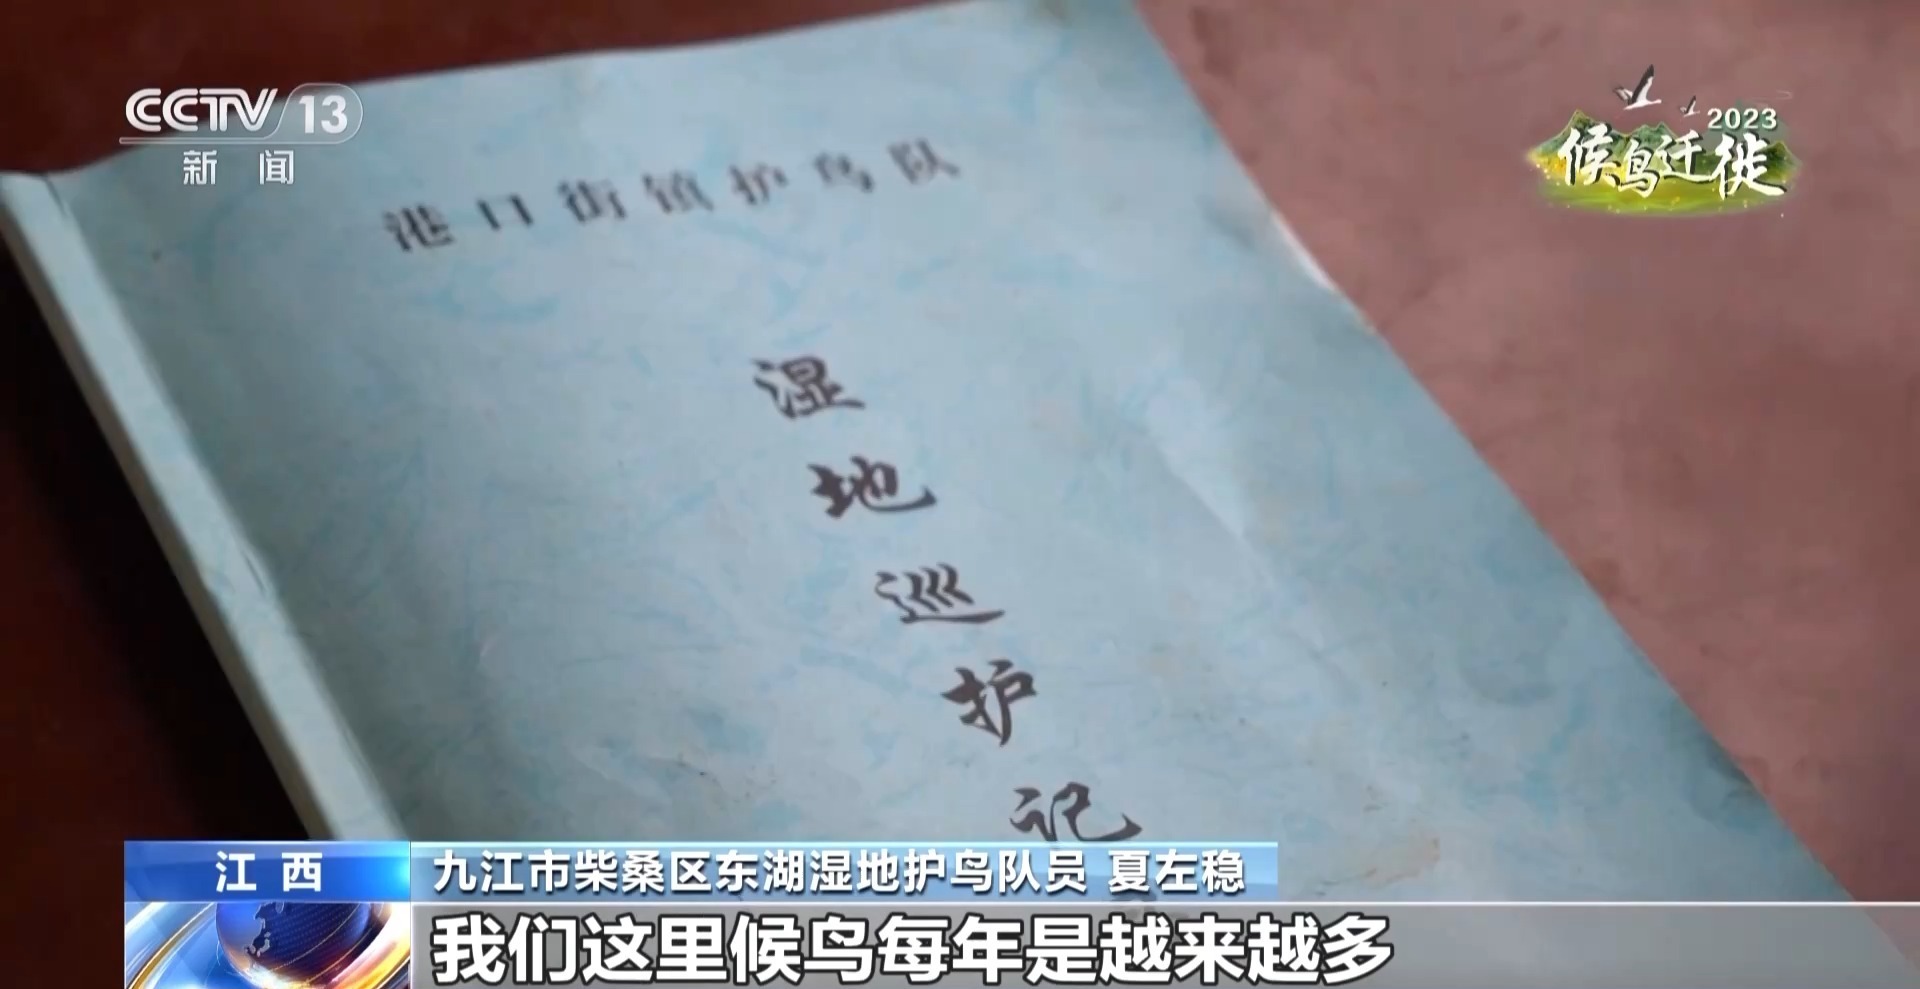 CCTV 13
新闻
2023
候鸟迁徙
港口街镇护鸟队
湿
地
巡
护
记
江西
九江市柴桑区东湖湿地护鸟队员 夏左稳
我们这里候鸟每年是越来越多